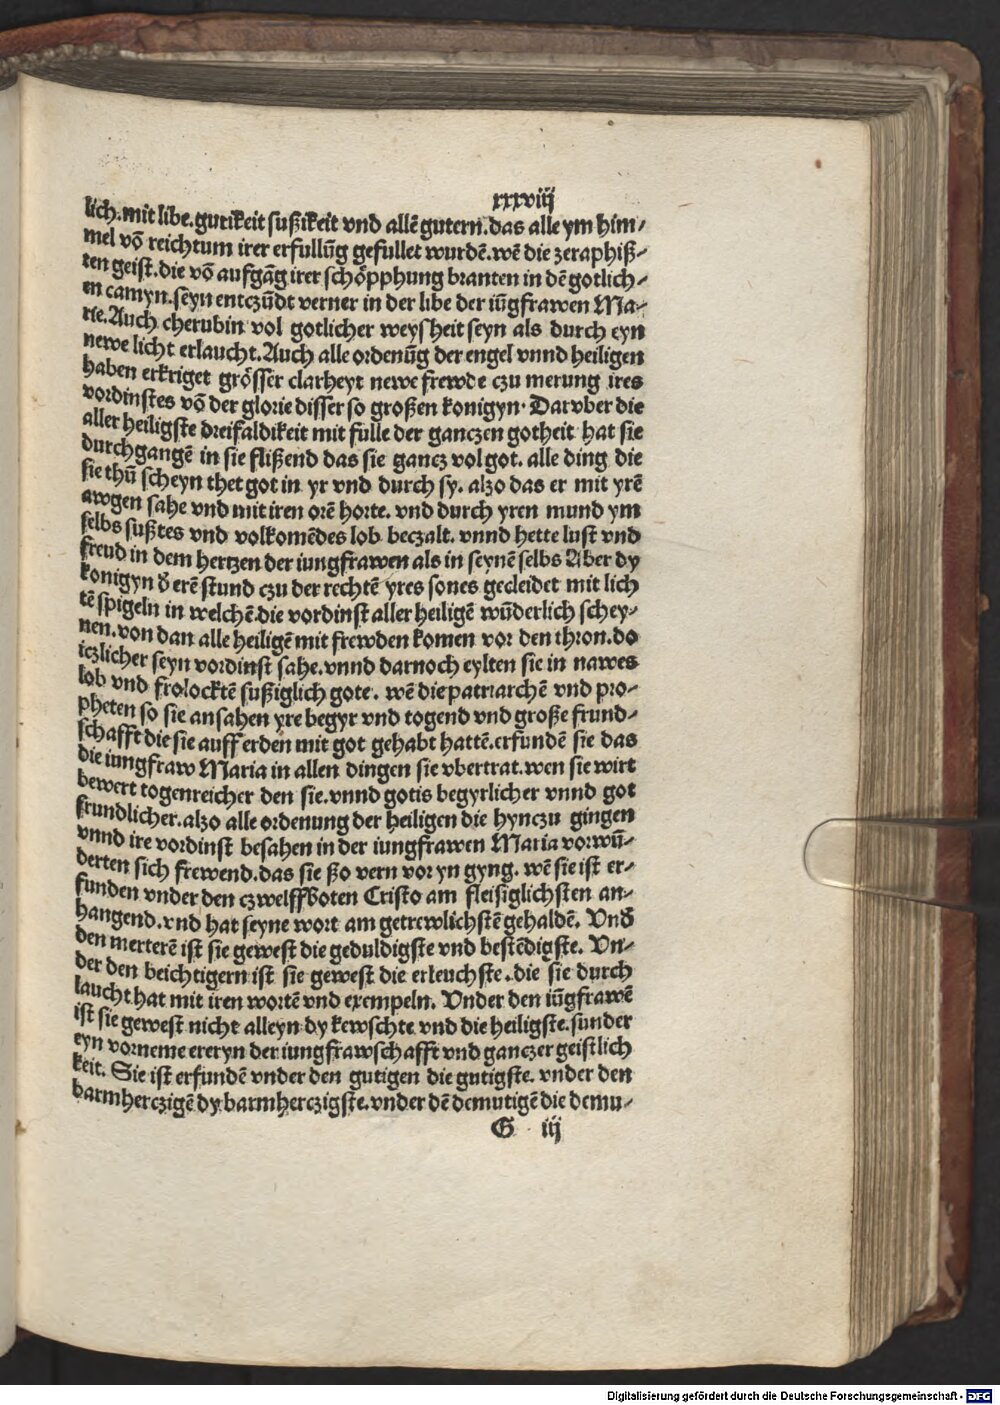 xxxviij
lich.mit libe.gutikeit sußikeit vnd allē gutern.das alle ym him-
mel vō reichtum irer erfullūg gefullet wurdē.wē die zeraphiß-
ten geist.die vō aufgāg irer schöpphung branten in dē gotlich-
en camyn.seyn entczūdt verner in der libe der iūgfrawen Ma-
rie.Auch cherubin vol gotlicher weysheit seyn als durch eyn
newe licht erlaucht.Auch alle ordenūg der engel vnnd heiligen
haben erkriget grösser clarheyt newe frewde czu merung ires
vordinstes vō der glorie disser so großen konigyn. Darvber die
aller heiligste dreifaldikeit mit fulle der ganczen gotheit hat sie
durchgangē in sie flißend das sie gancz vol got. alle ding die
sie thū scheyn thet got in yr vnd durch sy. alzo das er mit yrē
awgen sahe vnd mit iren orē horte. vnd durch yren mund ym
selbs sußtes vnd volkomēdes lob beczalt. vnnd hette lust vnd
freud in dem hertzen der iungfrawen als in seynē selbs Aber dy
konigyn d̄ erē stund czu der rechtē yres sones gecleidet mit lich
tē spigeln in welchē.die vordinst aller heiligē wūderlich schey-
nen.von dan alle heiligē mit frewden komen vor den thron.do
iczlicher seyn vordinst sahe.vnnd darnoch eylten sie in nawes
lob vnd frolocktē sußiglich gote. wē die patriarchē vnd pro-
pheten so sie ansahen yre begyr vnd togend vnd große frund-
schafft die sie auff erden mit got gehabt hattē.erfundē sie das
die iungfraw Maria in allen dingen sie vbertrat.wen sie wirt
bewert togenreicher den sie.vnnd gotis begyrlicher vnnd got
frundlicher.alzo alle ordenung der heiligen die hynczu gingen
vnnd ire vordinst besahen in der iungfrawen Maria vorwū-
derten sich frewend.das sie ßo vern vor yn gyng. wē sie ist er-
funden vnder den czwelffboten Cristo am fleisiglichsten an-
hangend.vnd hat seyne wort am getrewlichstē gehaldē. Vnd̄
den merterē ist sie gewest die geduldigste vnd bestēdigste. Vn-
der den beichtigern ist sie gewest die erleuchste.die sie durch
laucht hat mit iren wortē vnd exempeln. Vnder den iūgfrawē
ist sie gewest nicht alleyn dy kewschte vnd die heiligste.sunder
eyn vorneme ereryn der iungfrawschafft vnd ganczer geistlich
keit. Sie ist erfundē vnder den gutigen die gutigste. vnder den
barmherczigē dy barmherczigste.vnder dē demutigē die demu-
G iij
Digitalisierung gefördert durch die Deutsche Forschungsgemeinschaft - DFG